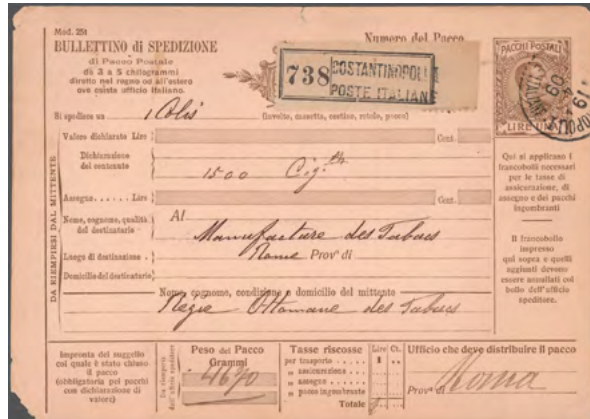 Mod. 251
BULLETTINO di SPEDIZIONE
di Pacco Postale
da 3 a 5 chilogrammi
diretto nel regno od all'estero
ove esista ufficio italiano.
Numero del Pacco
738 COSTANTINOPOLI
POSTE ITALIANE
PACCHI POSTALI
LIRE UNA
09
Si spedisce un 1 Colis (involto, cassetta, cestino, rotolo, pacco)
DA RIEMPIRSI DAL MITTENTE
Valore dichiarato Lire Cent.
Dichiarazione
del contenuto
1500 Cig.
Assegno Lire Cent.
Nome, cognome, qualità
del destinatario
Al
Manufacture des Tabacs
Luogo di destinazione
Rome Prov.ª di
Domicilio del destinatario
Nome, cognome, condizione e domicilio del mittente
Regie Ottomane des Tabacs
Qui si applicano i
francobolli necessari
per le tasse di
assicurazione, di
assegno e dei pacchi
ingombranti
Il francobollo
impresso
qui sopra e quelli
aggiunti devono
essere annullati col
bollo dell'ufficio
speditore.
Impronta del suggello
col quale è stato chiuso
il pacco
(obbligatoria pei pacchi
con dichiarazione di
valore)
Da riempirsi
dall'ufficio speditore
Peso del Pacco
Grammi
4670
Tasse riscosse Lire Ct.
per trasporto 1
„ assicurazione
„ assegno
„ pacco ingombrante
Totale
Ufficio che deve distribuire il pacco
Roma
Prov.ª di